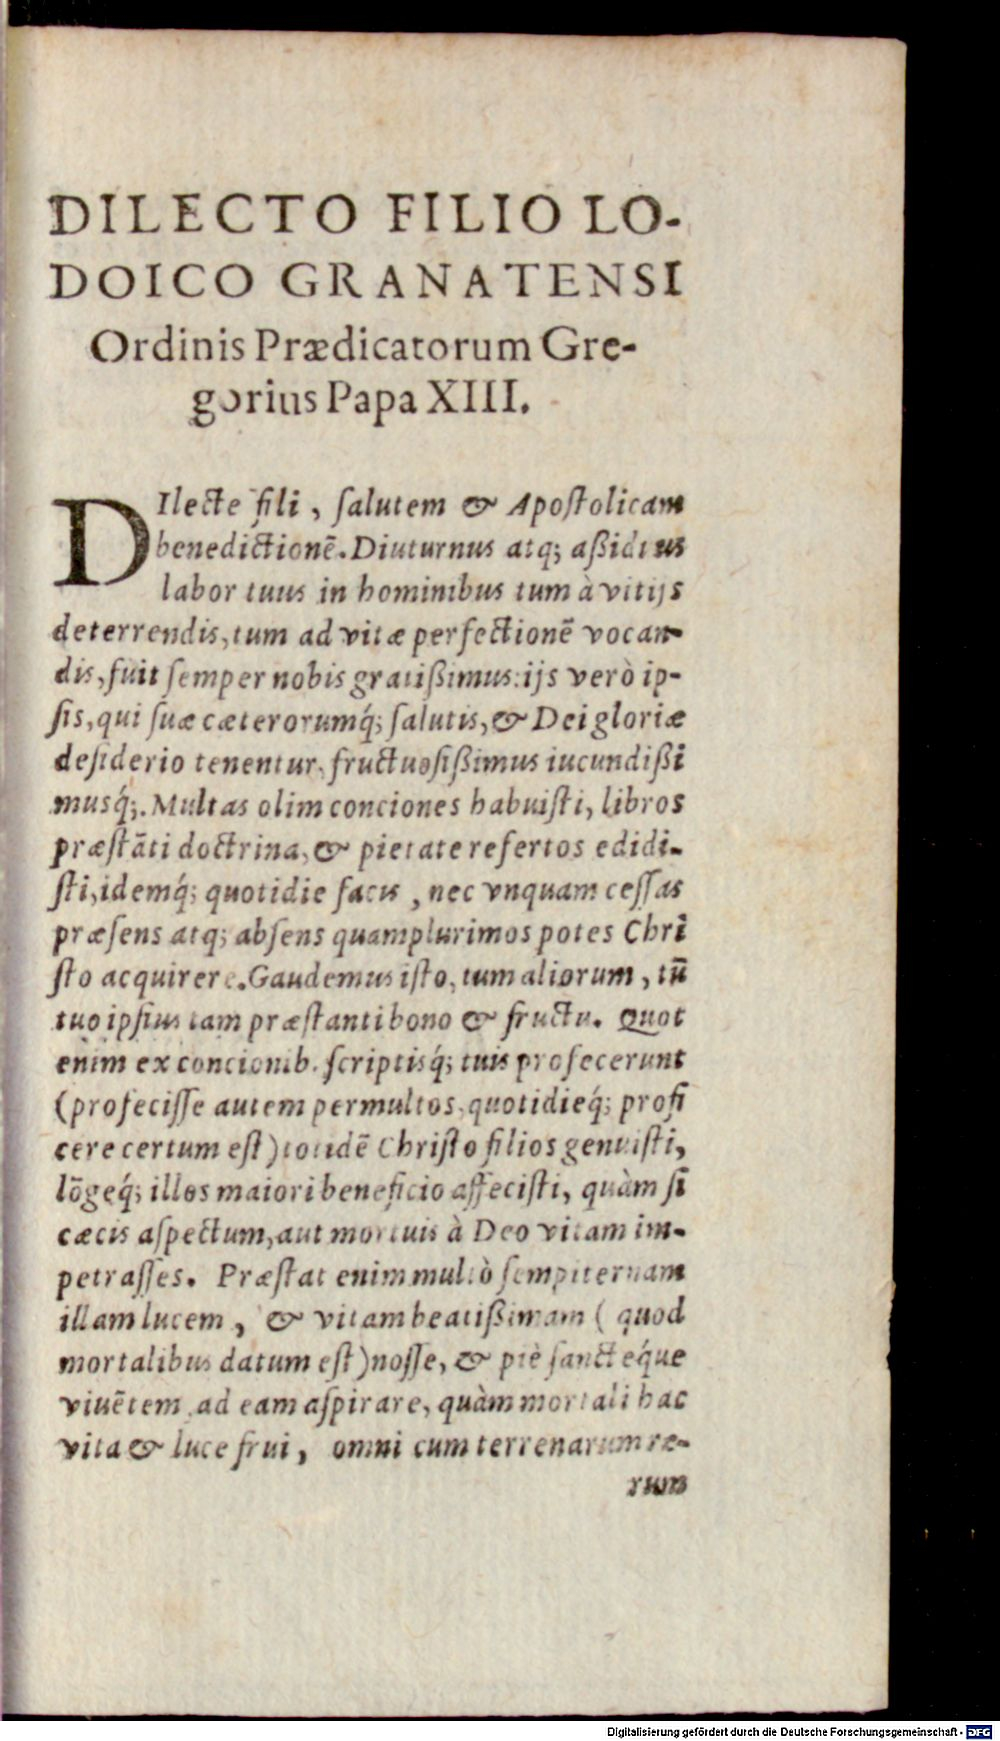 DILECTO FILIO LO-
DOICO GRANATENSI
Ordinis Prædicatorum Gre-
gorius Papa XIII.
DIlecte fili, ſalutem & Apoſtolicam
benedictionē. Diuturnus atq; aßiduus
labor tuus in hominibus tum à vitijs
deterrendis, tum ad vitæ perfectionē vocan-
dis, fuit ſemper nobis gratißimus: ijs verò ip-
ſis, qui ſuæ cæterorumq́; ſalutis, & Dei gloriæ
deſiderio tenentur, fructuoſißimus iucundißi
musq́;. Multas olim conciones habuiſti, libros
præſtāti doctrina, & pietate refertos edidi-
ſti, idemq́; quotidie facis, nec vnquam ceſſas
præſens atq; abſens quamplurimos potes Chri
ſto acquirere. Gaudemus iſto, tum aliorum, tū
tuo ipſius tam præſtanti bono & fructu. Quot
enim ex concionib. ſcriptisq́; tuis profecerunt
(profeciſſe autem permultos, quotidieq́; profi
cere certum eſt) totidē Chriſto filios genuiſti,
lōgeq́; illos maiori beneficio affeciſti, quàm ſi
cæcis aſpectum, aut mortuis à Deo vitam im-
petraſſes. Præſtat enim multò ſempiternam
illam lucem, & vitam beatißimam (quod
mortalibus datum eſt) noſſe, & piè ſancteq́ue
viuētem ad eam aſpirare, quàm mortali hac
vita & luce frui, omni cum terrenarum re-
rum
Digitalisierung gefördert durch die Deutsche Forschungsgemeinschaft - DFG